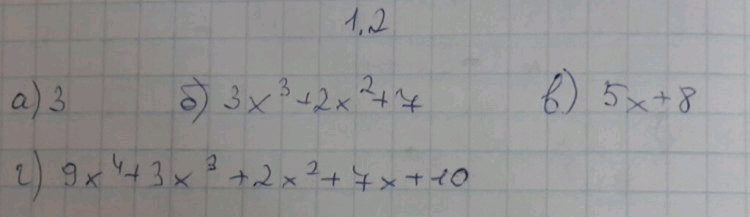 1.2
а) 3 б) 3x³+2x²+7 в) 5x+8
г) 9x⁴+3x³+2x²+7x+10